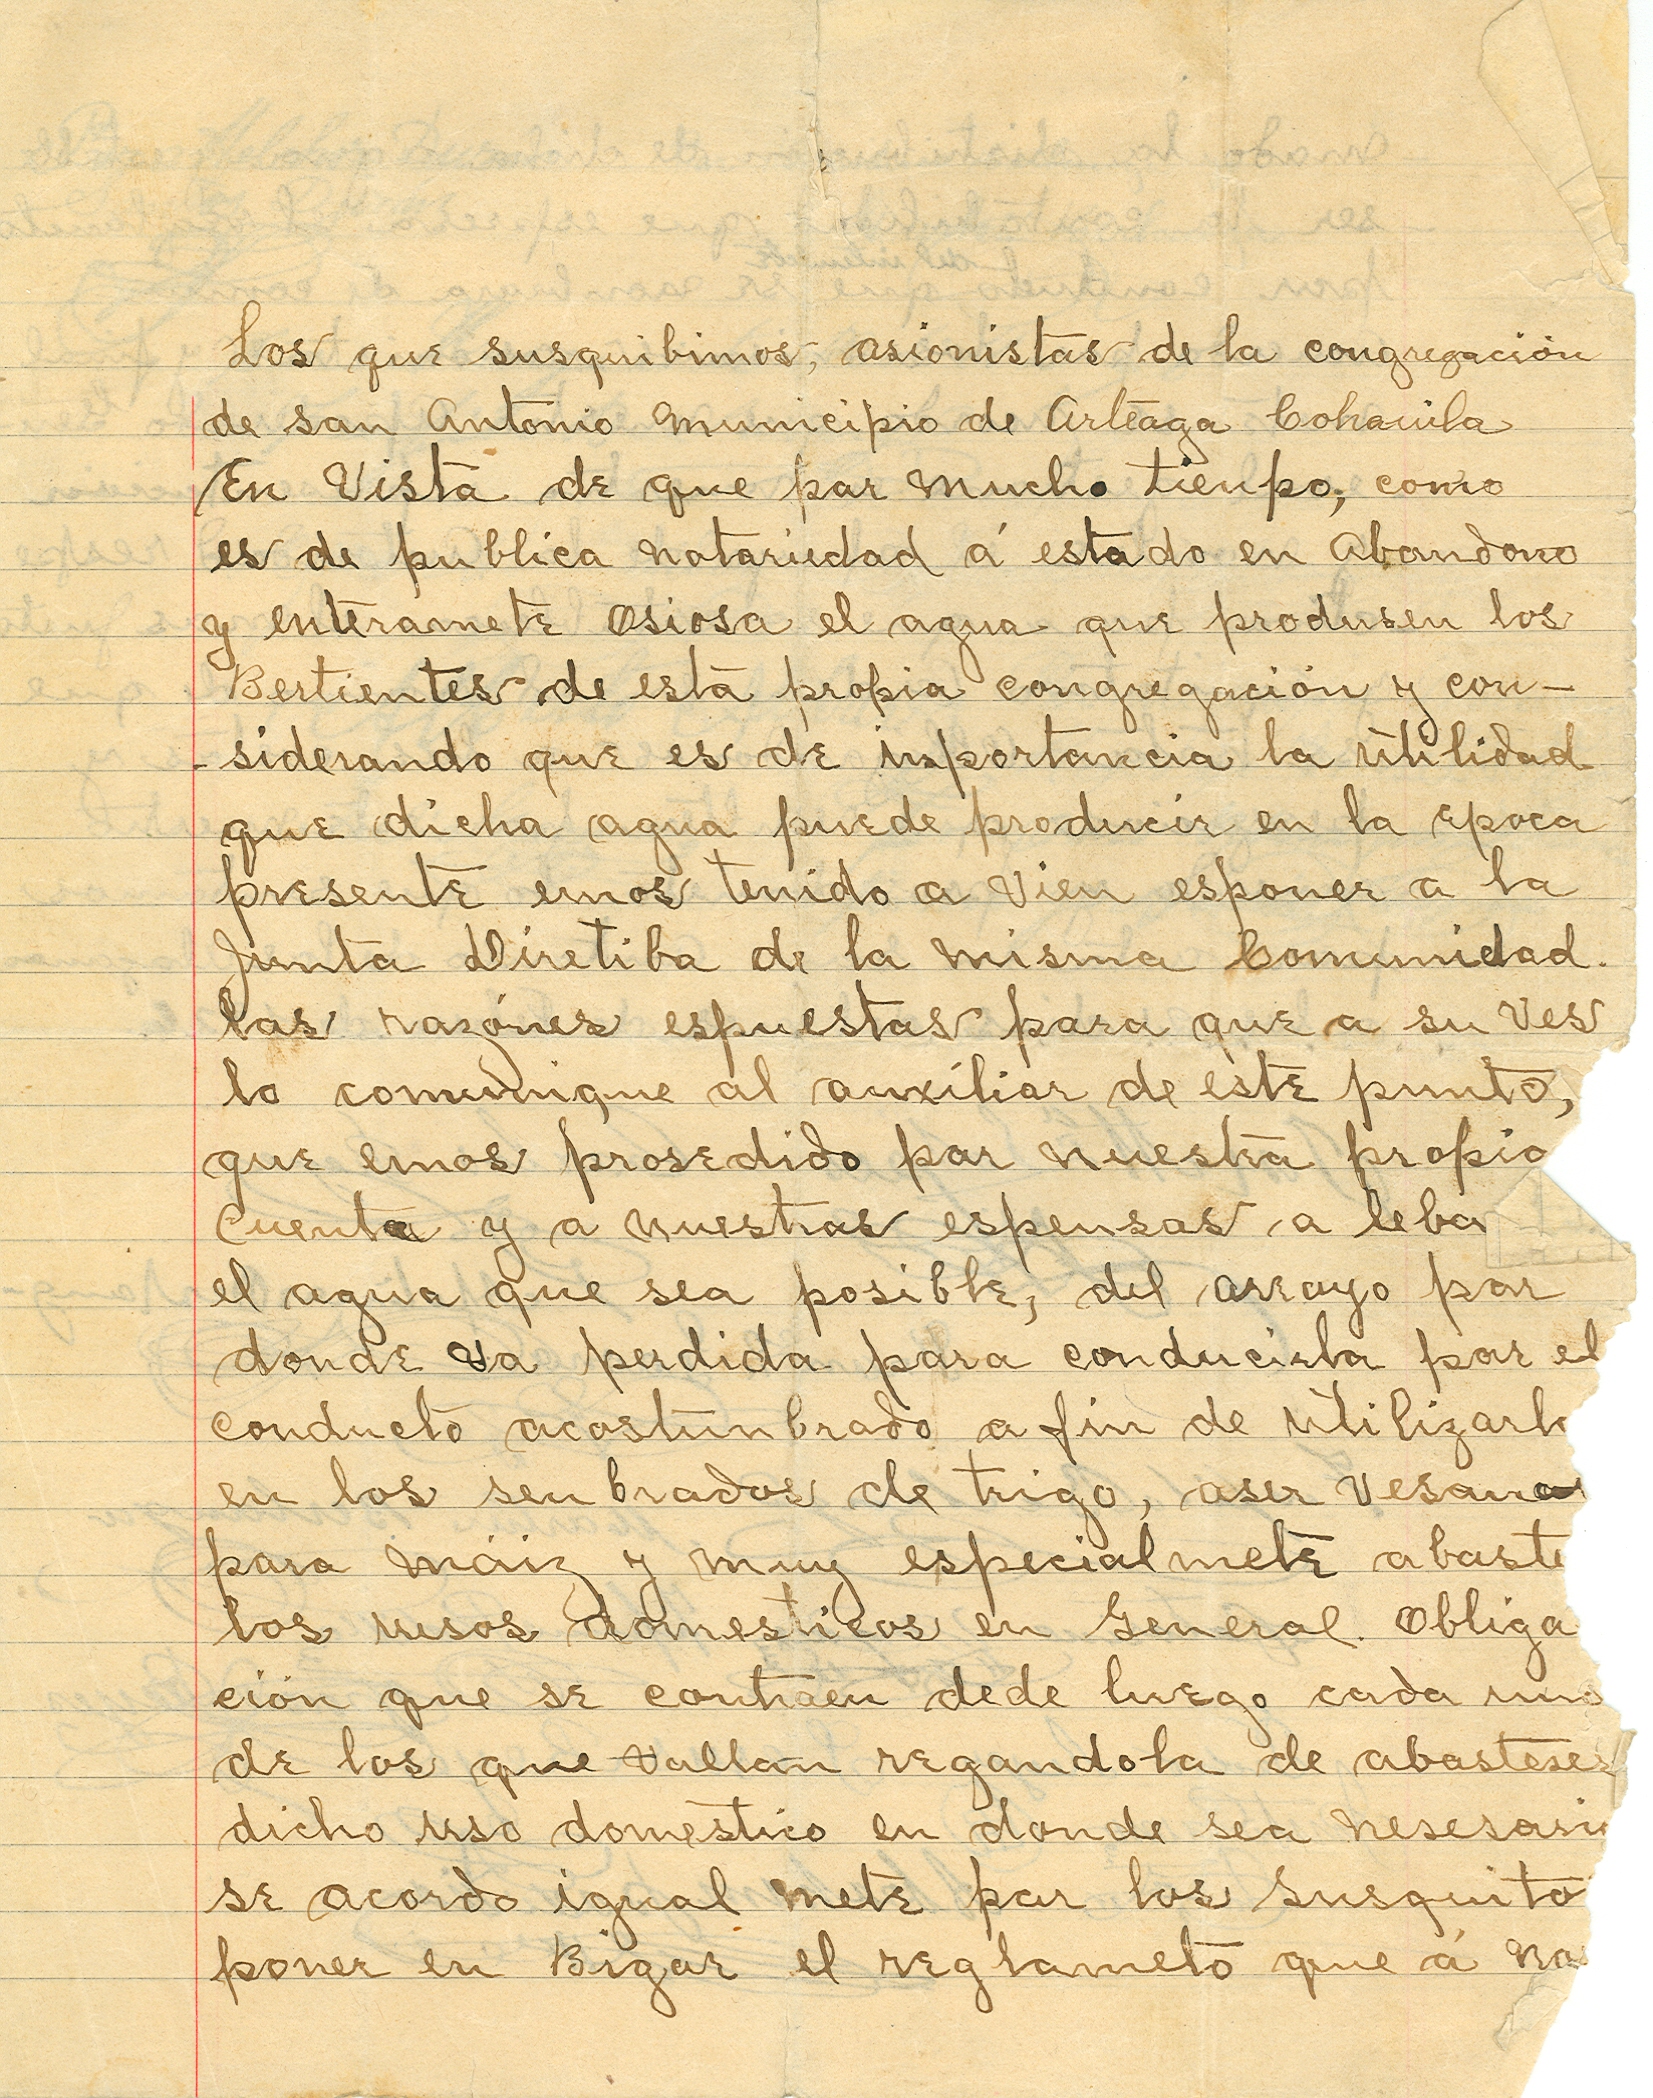 Los que susquibimos, asionistas de la congregación
de san Antonio Municipio de Arteaga Cohauila
En Vista de que por mucho tienpo, como
es de publica notariedad á estado en Abandono
y enteramete osiosa el agua que produsen los
Bertientes de esta propia congregación y con-
siderando que es de inportancia la utilidad
que dicha agua puede producir en la epoca
presente emos tenido a vien esponer a la
Junta Diretiba de la misma Comunidad.
las razónes espuestas para que a su Ves
lo comunique al auxiliar de este punto,
que emos prosedido por nuestra propia
cuenta y a nuestras espensas a leba
el agua que sea posible, del arroyo por
donde va perdida para conducirla por el
conducto acostunbrado a fin de utilizarla
en los senbrados de trigo, aser Vesanas
para máiz y muy especialmete abaste
los usos domesticos en General. Obliga
ción que se contraen dede luego cada uno
de los que vallan regandola de abasteser
dicho uso domestico en donde sea nesesario
se acordo igual mete por los susquito
poner en Bigar el reglameto que á no